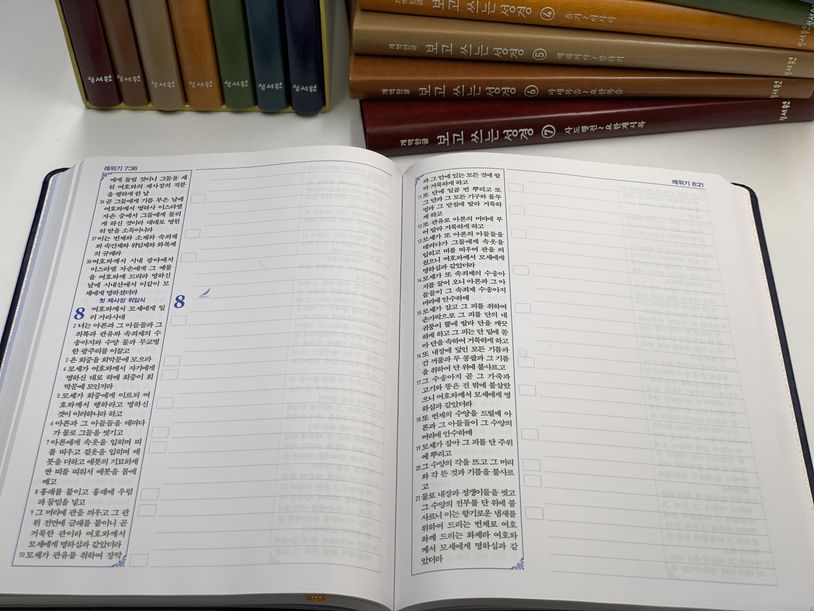 성서원
성서원
성서원
성서원
성서원
성서원
성서원
개역한글 보고 쓰는 성경 ④ 욥기/이사야
개역한글 보고 쓰는 성경 ⑤
개역한글 보고 쓰는 성경 ⑥ 마태복음/요한복음
개역한글 보고 쓰는 성경 ⑦ 사도행전/요한계시록
성서원
레위기 7:36
에게 돌릴 것이니 그들을 세
워 여호와의 제사장의 직분
을 행하게 한 날
36 곧 그들에게 기름 부은 날에
여호와께서 명하사 이스라엘
자손 중에서 그들에게 돌리
게 하신 것이라 대대로 영원
히 받을 소득이니라
37 이는 번제와 소제와 속죄제
와 속건제와 위임제와 화목제
의 규례라
38 여호와께서 시내 광야에서
이스라엘 자손에게 그 예물
을 여호와께 드리라 명하신
날에 시내산에서 이같이 모
세에게 명하셨더라
첫 제사장 위임식
8 여호와께서 모세에게 일
러 가라사대
2 너는 아론과 그 아들들과 그
의복과 관유와 속죄제의 수
송아지와 수양 둘과 무교병
한 광주리를 이끌고
3 온 회중을 회막문에 모으라
4 모세가 여호와께서 자기에게
명하신 대로 하매 회중이 회
막문에 모인지라
5 모세가 회중에게 이르되 여
호와께서 행하라고 명하신
것이 이러하니라 하고
6 아론과 그 아들들을 데려다
가 물로 그들을 씻기고
7 아론에게 속옷을 입히며 띠
를 띠우고 겉옷을 입히며 에
봇을 더하고 에봇의 기묘하게
짠 띠를 띠워서 에봇을 몸에
매고
8 흉패를 붙이고 흉패에 우림
과 둠밈을 넣고
9 그 머리에 관을 씌우고 그 관
위 전면에 금패를 붙이니 곧
거룩한 관이라 여호와께서
모세에게 명하심과 같았더라
10 모세가 관유를 취하여 장막
8
레위기 8:21
과 그 안에 있는 모든 것에 발
라 거룩하게 하고
11 또 단에 일곱 번 뿌리고 또
그 단과 그 모든 기구와 물두
멍과 그 받침에 발라 거룩하
게 하고
12 또 관유로 아론의 머리에 부
어 발라 거룩하게 하고
13 모세가 또 아론의 아들들을
데려다가 그들에게 속옷을
입히고 띠를 띠우며 관을 씌
웠으니 여호와께서 모세에게
명하심과 같았더라
14 모세가 또 속죄제의 수송아
지를 끌어 오니 아론과 그 아
들들이 그 속죄제 수송아지
머리에 안수하매
15 모세가 잡고 그 피를 취하여
손가락으로 그 피를 단의 네
귀퉁이 뿔에 발라 단을 깨끗
하게 하고 그 피는 단 밑에 쏟
아 단을 속하여 거룩하게 하고
16 또 내장에 덮인 모든 기름과
간 꺼풀과 두 콩팥과 그 기름
을 취하여 단 위에 불사르고
17 그 수송아지 곧 그 가죽과
고기와 똥은 진 밖에 불살랐
으니 여호와께서 모세에게 명
하심과 같았더라
18 또 번제의 수양을 드릴쌔 아
론과 그 아들들이 그 수양의
머리에 안수하매
19 모세가 잡아 그 피를 단 주위
에 뿌리고
20 그 수양의 각을 뜨고 그 머리
와 각 뜬 것과 기름을 불사르
고
21 물로 내장과 정갱이들을 씻고
그 수양의 전부를 단 위에 불
사르니 이는 향기로운 냄새를
위하여 드리는 번제로 여호
와께 드리는 화제라 여호와
께서 모세에게 명하심과 같
았더라